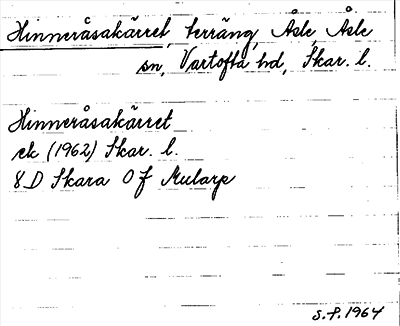 Hinneråsakärret, terräng, Åsle, Åsle
sn, Vartofta hd, Skar. l.
Hinneråsakärret
ek (1962) Skar. l.
8D Skara 0f Mularp
S.F. 1964